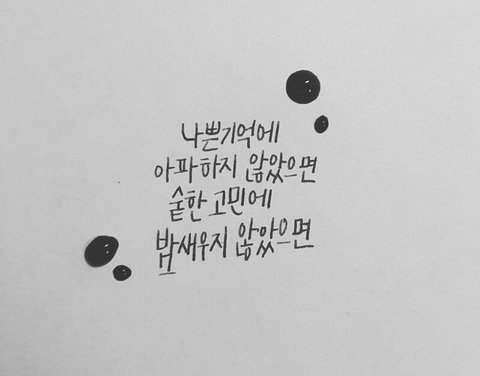 나쁜기억에
아파하지 않았으면
숱한 고민에
밤새우지 않았으면